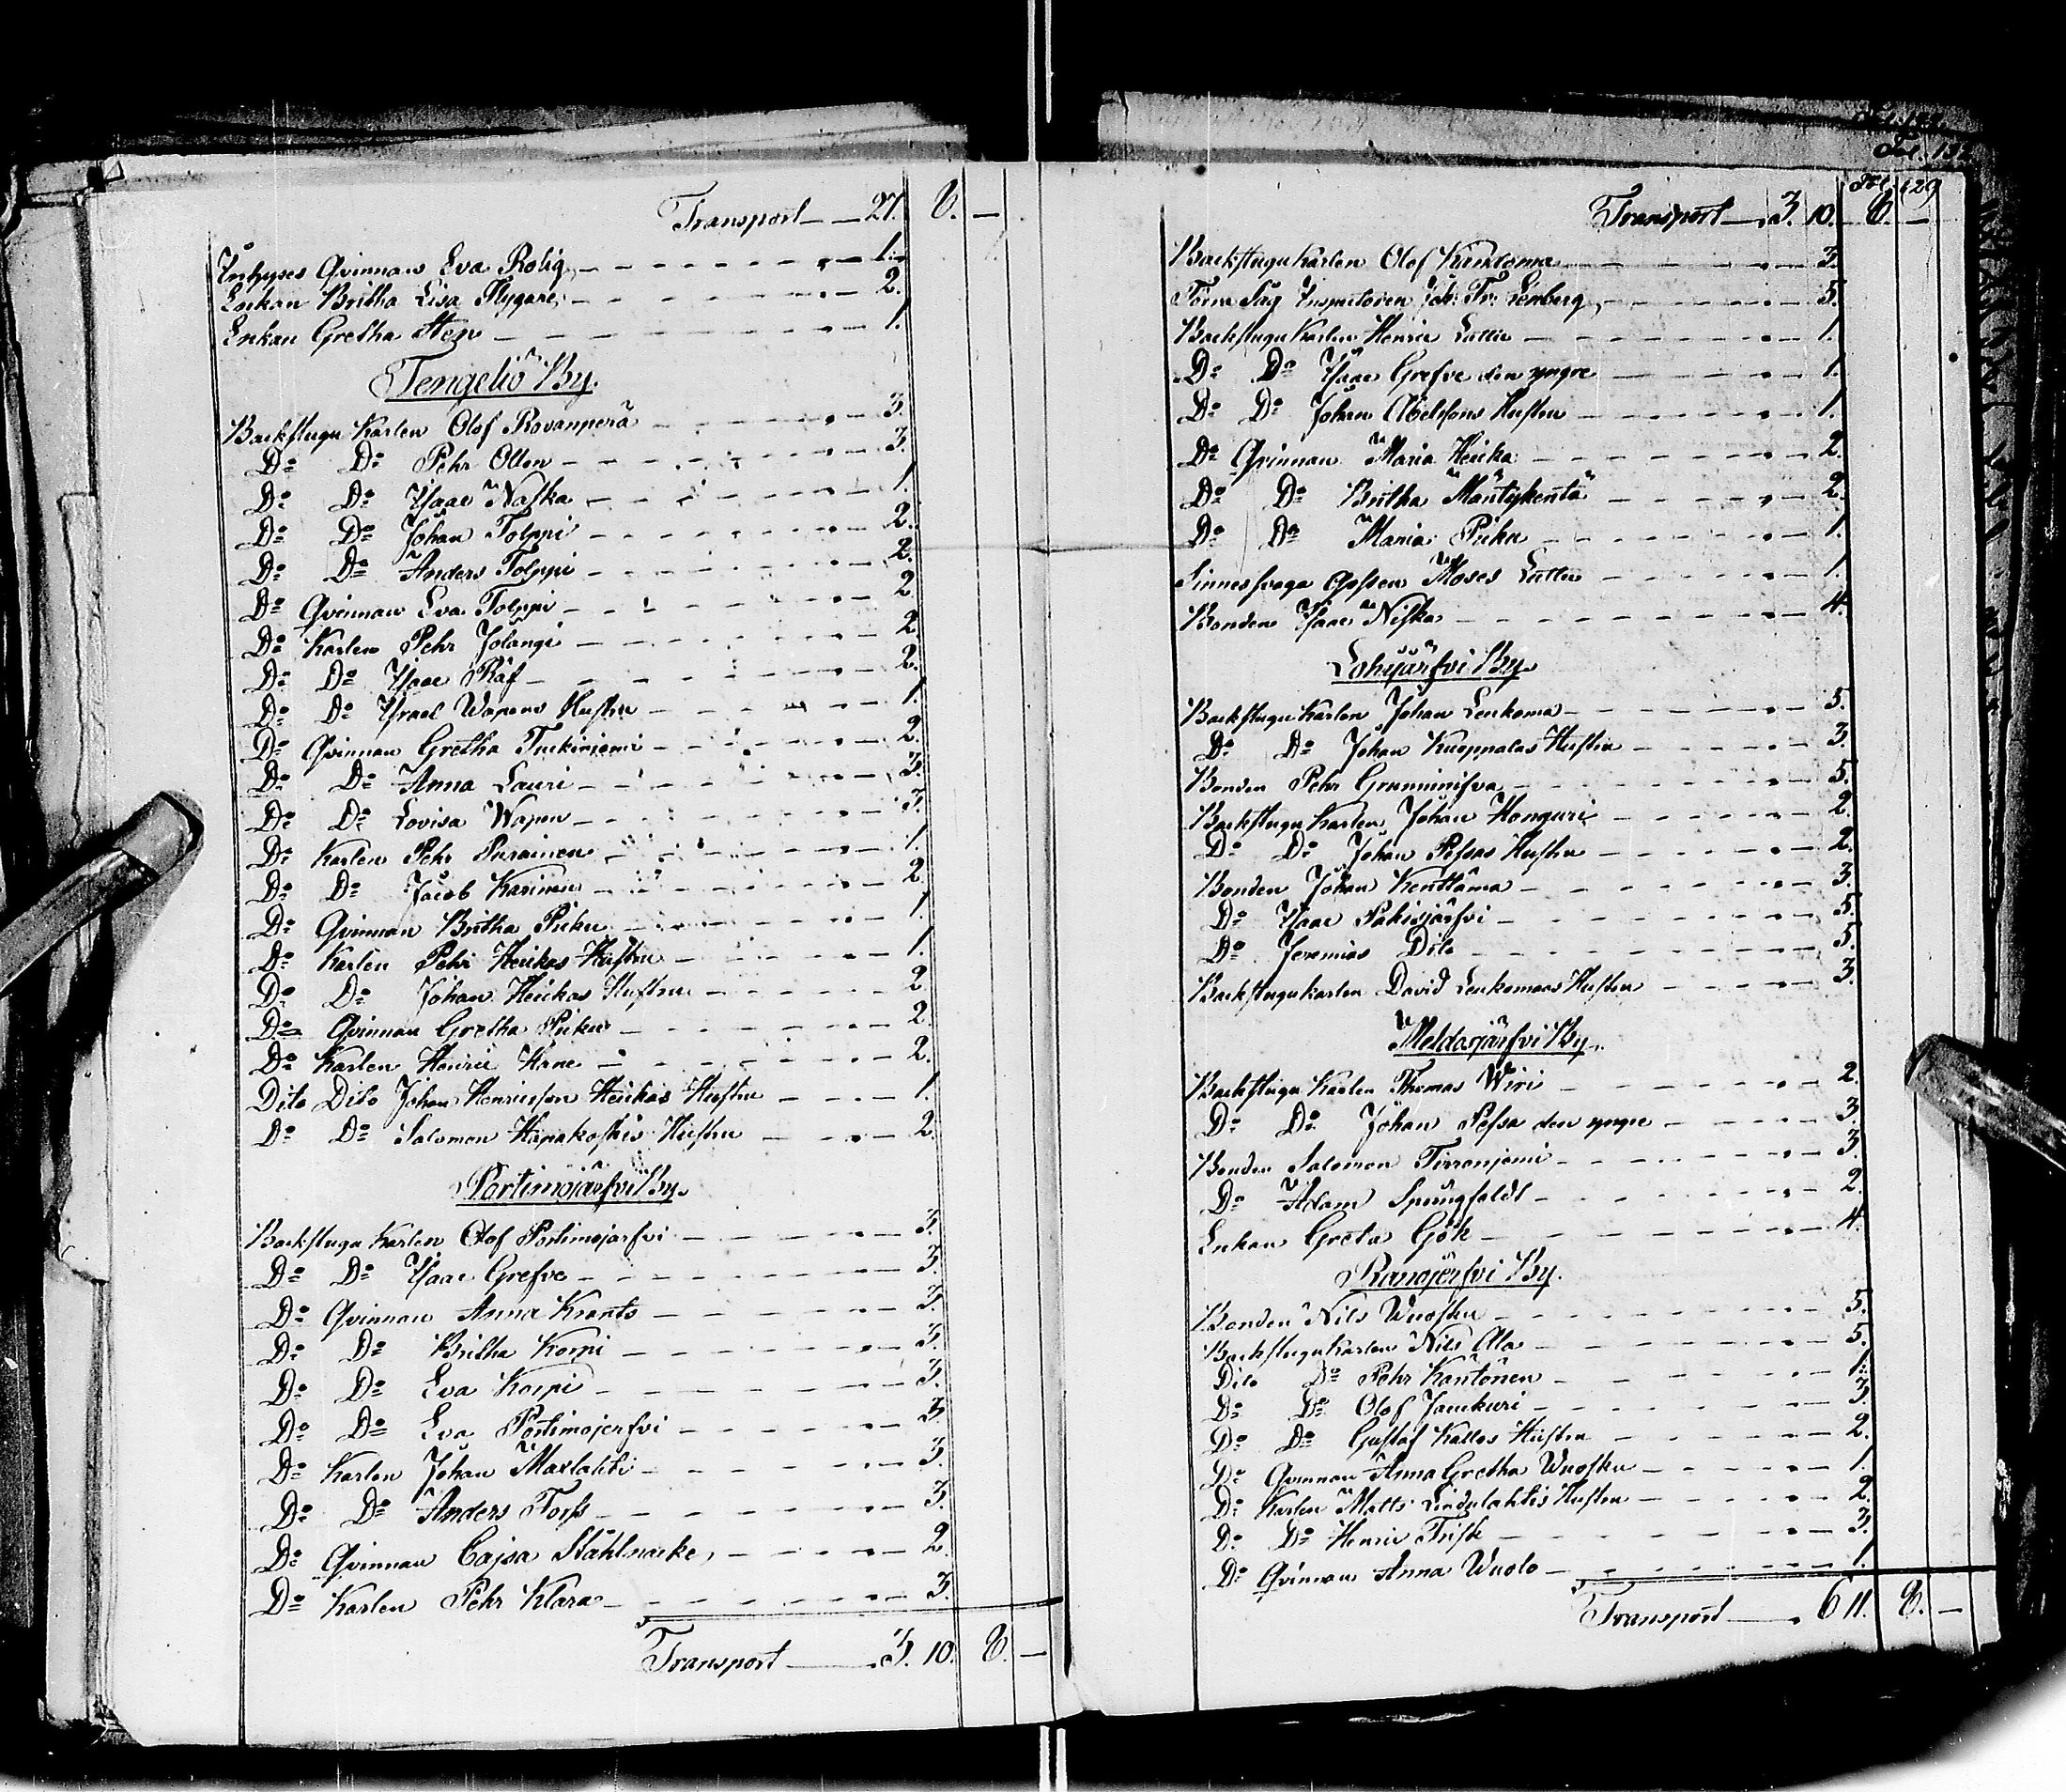 Transport — 27. 8. —
Inhyses Qvinnan Eva Rolig — 1.
Enkan Britha Lisa Flygare, — 2.
Enkan Gretha Sten — 1.
Tengeliö By.
Backstugu Karlen Olof Rovanperä — 3.
Do Do Pehr Ollon — 3.
Do Do Isaac Naska — 1.
Do Do Johan Tolppi — 2.
Do Do Anders Tolppi — 2.
Do Qvinnan Eva Tolppi — 2.
Do Karlen Pehr Jolangi — 2.
Do Do Isaac Räf — 2.
Do Do Israel Wapens Hustru — 1.
Do Qvinnan Gretha Turkiniemi — 2.
Do Do Anna Lauri — 3.
Do Do Lovisa Wapen — 3.
Do Karlen Pehr Purainen — 1.
Do Do Jacob Karinen — 2.
Do Qvinnan Britha Piiku — 1.
Do Karlen Pehr Heickas Hustru — 1.
Do Do Johan Heickas Hustru — 2.
Do Qvinnan Gretha Piiku — 2.
Do Karlen Henric Hane — 2.
Dito Dito Johan Henricsson Heickas Hustru — 1.
Do Do Salomon Hapakoskis Hustru — 2.
Portimojärfvi By.
Backstugu Karlen Olof Portimojarfvi — 3.
Do Do Isaac Grefve — 3.
Do Qvinnan Anna Krants — 3.
Do Do Britha Korpi — 3.
Do Do Eva Korpi — 3.
Do Do Eva Portimojerfvi — 3.
Do Karlen Johan Maxlahti — 3.
Do Do Anders Forss — 3.
Do Qvinnan Cajsa Ståhlnacke, — 2.
Do Karlen Pehr Klara — 3.
Transport — 3. 10. 8. —
Fol. 129
Transport — 3. 10. 8. —
Backstugu Karlen Olof — 3.
Förra Såg Inspectoren Joh: Fr: Lenberg, — 5.
Backstugu Karlen Henric Luttu — 1.
Do Do Isaac Grefve den yngre — 1.
Do Do Johan Abelssons Hustru — 1.
Do Qvinnan Maria Heicka — 2.
Do Do Britha Mäntykentä — 2.
Do Do Maria Piiku — 1.
Sinnesvaga Gossen Moses Luttu — 1.
Bonden Isaac Niska — 4.
Lohijärfvi By.
Backstugu Karlen Johan Leukoma — 5.
Do Do Johan Kuoppalas Hustru — 3.
Bonden Pehr — 5.
Backstugu Karlen Johan Honguri — 2.
Do Do Johan Pessas Hustru — 2.
Bonden Johan Kenttämä — 3.
Do Isaac Pakisjärfvi — 5.
Do Jeremias Dito — 5.
Backstugu karlen David Leukomaas Hustru — 3.
Meldosjärfvi By.
Backstugu Karlen Thomas Wiri — 2.
Do Do Johan Pessa den yngre — 3.
Bonden Salomon Tirroniemi — 3.
Do Adam Springfeldt — 2.
Enkan Greta Gök — 4.
Ranojerfvi By.
Bonden Nils Wuosku — 5.
Backstugu Karlen Nils Ala — 5.
Dito Do Pehr Käntönen — 1.
Do Do Olof Jauckuri — 3.
Do Do Gustaf Kallos Hustru — 2.
Do Qvinnan Anna Gretha Wuosku — 1.
Do Karlen Matts Lindulahtis Hustru — 2.
Do Do Henric Frisk — 3.
Do Qvinnan Anna Wuolo — 1.
Transport — 6 11. 8. —